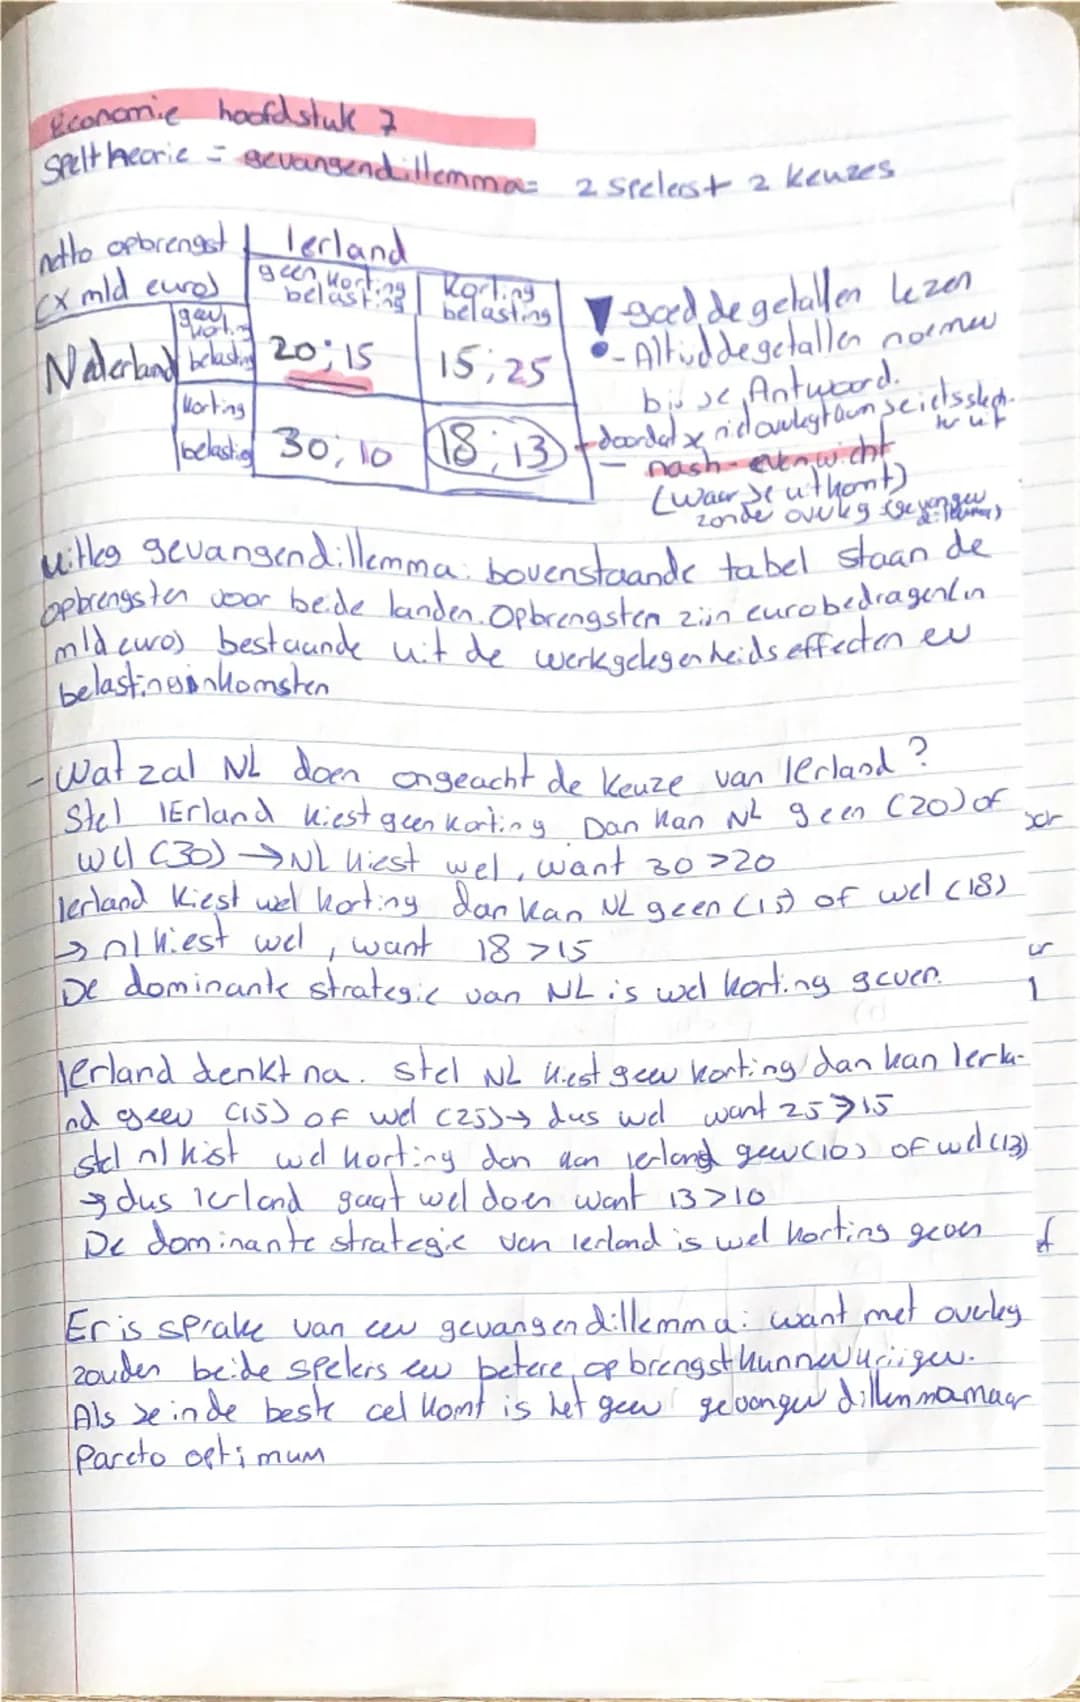 Economie hoofdstuk 7
Speltheorie = gevangendillemma= 2 spelers + 2 keuzes
netto opbrengst
(x mld euro)
Ierland
geen korting belasting
korting belasting
Nederland
geen korting belasting
20; 15
15; 25
korting belasting
30; 10
18; 13
! - goed de getallen lezen
- Altijd de getallen noemen
bij je Antwoord.
- nash-evenwicht
(waar je uitkomt)
zonder overleg (gevangen
Uitleg gevangendillemma: bovenstaande tabel staan de
opbrengsten voor beide landen. Opbrengsten zijn eurobedragen (in
mld euro) bestaande uit de werkgelegenheidseffecten en
belastinginkomsten
- Wat zal NL doen ongeacht de keuze van Ierland?
Stel IErland kiest geen korting Dan kan NL geen (20) of
wel (30) → NL kiest wel, want 30 > 20
Ierland kiest wel korting dan kan NL geen (15) of wel (18)
→ nl kiest wel, want 18 > 15
De dominante strategie van NL is wel korting geven.
Ierland denkt na. stel NL kiest geen korting dan kan Ierla-
nd geen (15) of wel (25) → dus wel want 25 > 15
stel nl kist wel korting dan kan ierland geen (10) of wel (13)
→ dus ierland gaat wel doen want 13 > 10
De dominante strategie van ierland is wel korting geven
Er is sprake van een gevangendillemma: want met overleg
zouden beide spelers een betere opbrengst kunnen krijgen.
Als je in de beste cel komt is het geen gevangen dillemma maar
Pareto optimum